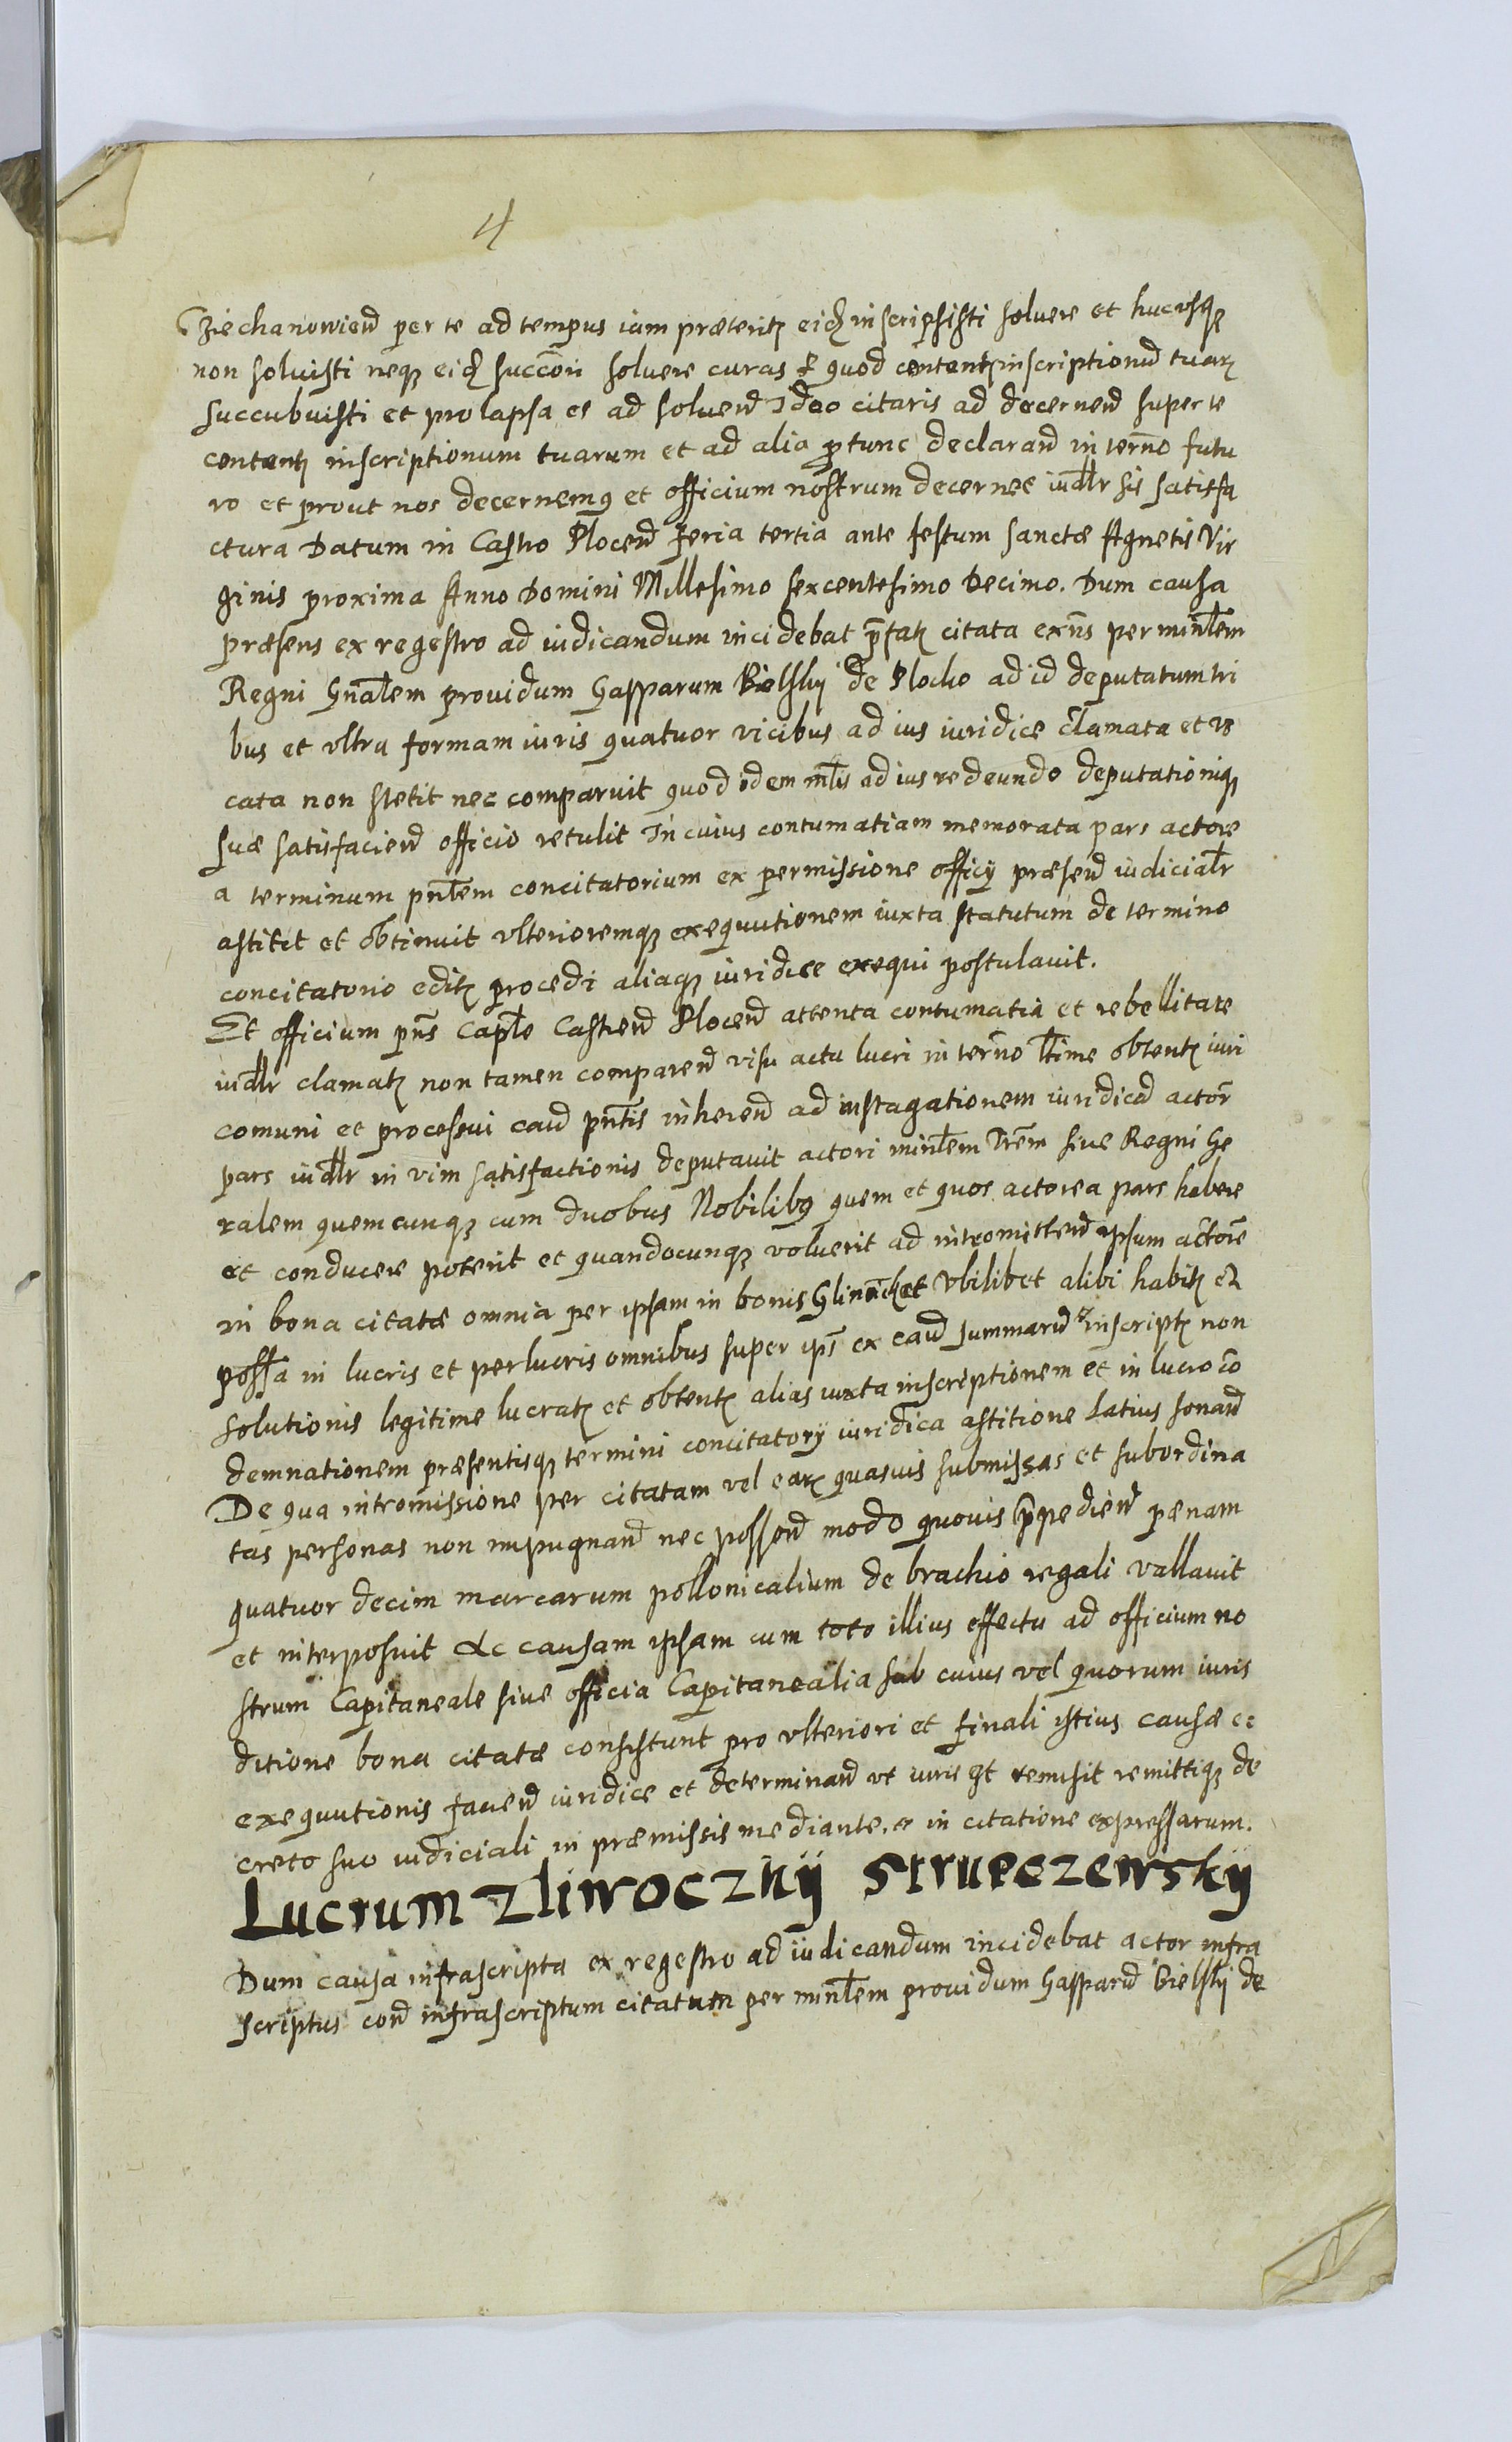 4
Cziechanowien per te ad tempus iam præterit eid inscripsisti soluere et hucusq
non soluisti neq eid succōri soluere curas et quod content inscriptionum tuar
succubuisti et prolapsa es ad soluend Ideo citaris ad decernend super te
content inscriptionum tuarum et ad alia ptunc declarand in terno futu
ro et prout nos decernemq et officium nostrum decernet iudlr sis satisfa
ctura Datum in Castro Plocen feria tertia ante festum sanctæ Agnetis Vir
ginis proxima Anno Domini Millesimo sexcentesimo Decimo. Dum causa
præsens ex regestro ad iudicandum incidebat pfat citata exns per minlem
Regni Gnalem prouidum Gasparum Bielsky de Plocko ad id deputatum tri
bus et vltra formam iuris quatuor vicibus ad ius iuridice clamata et vo
cata non stetit nec comparuit quod idem mlis ad ius redeundo deputationiq
suæ satisfaciend officio retulit In cuius contumatiam memorata pars actore
a terminum pntem concitatorium ex permissione officÿ præsen iudicialr
astitit et obtinuit vlterioremq exequutionem iuxta statutum de termino
concitatorio edit procedi aliaq iuridice exequi postulauit.
Et officium pns Caple Castren Plocen attenta contumatia et rebellitate
iudlr clamat non tamen comparen visu actu lucri in terno ltime obtent iuri
comuni et processui caus pntis inheren ad instagationem iuridica actor
pars iudlr in vim satisfactionis deputauit actori minlem Trem siue Regni Ge
ralem quemcunq cum duobus Nobilibq quem et quos actorea pars habere
et conducere poterit et quandocunq voluerit ad intromittend ipsum actore
in bona citatæ omnia per ipsam in bonis Glinick et Vbilibet alibi habit et
possa in lucris et perlucris omnibus super ips ex caus summarum inscript non
solutionis legitime lucrat et obtent alias iuxta inscriptionem et in lucro cō
demnationem præsentisq termini concitatorÿ iuridica astitione Latius sonan
De qua intromissione per citatam vel ear quasuis submissas et subordina
tas personas non impugnand nec possend modo quouis ppediend pænam
quatuor decim marcarum pollonicalium de brachio regali vallauit
et interposuit Ac causam ipsam cum toto illius effectu ad officium no
strum Capitaneale siue officia Capitanealia sub cuius vel quorum iuris
ditione bona citatæ consistunt pro vlteriori et finali istius causæ ce
exequutionis faciend iuridice et determinand vt iuris est remisit remittiq de
creto suo iudiciali in præmissis mediante. in citatione expressarum.
Lucrum Zliwocznÿ Strupczewskÿ
Dum causa infrascripta ex regestro ad iudicandum incidebat actor infra
scriptus con infrascriptum citatum per minlem prouidum Gasparum Bielsky de